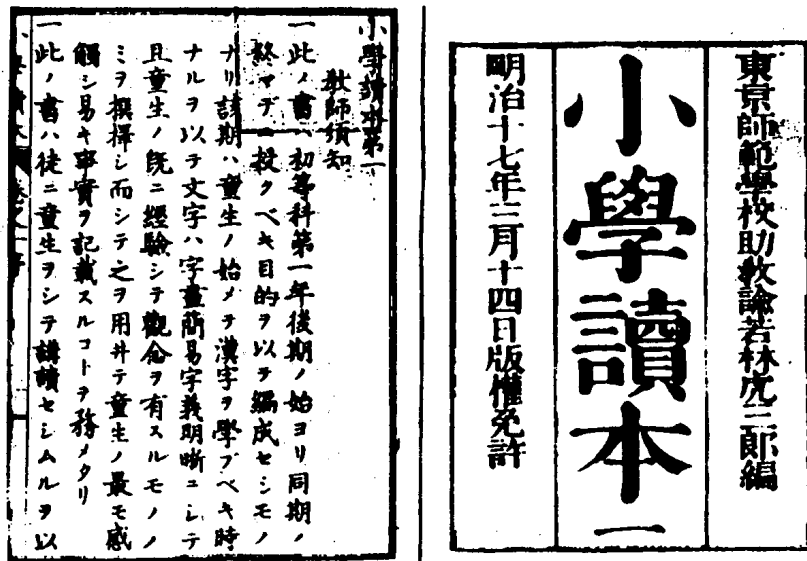 東京師範學校助教諭若林虎三郎編
小學讀本一
明治十七年三月十四日版權免許
小學讀本第一
教師須知
一此ノ書ハ初等科第一年後期ノ始ヨリ同期ノ
終マデニ授クベキ目的ヲ以テ編成セシモノ
ナリ該期ハ童生ノ始メテ漢字ヲ學ブベキ時
ナルヲ以テ文字ハ字畫簡易字義明晰ニシテ
且童生ノ既ニ經驗シテ觀念ヲ有スルモノノ
ミヲ撰擇シ而シテ之ヲ用井テ童生ノ最モ感
觸シ易キ事實ヲ記載スルコトヲ務メタリ
一此ノ書ハ徒ニ童生ヲシテ講讀セシムルヲ以